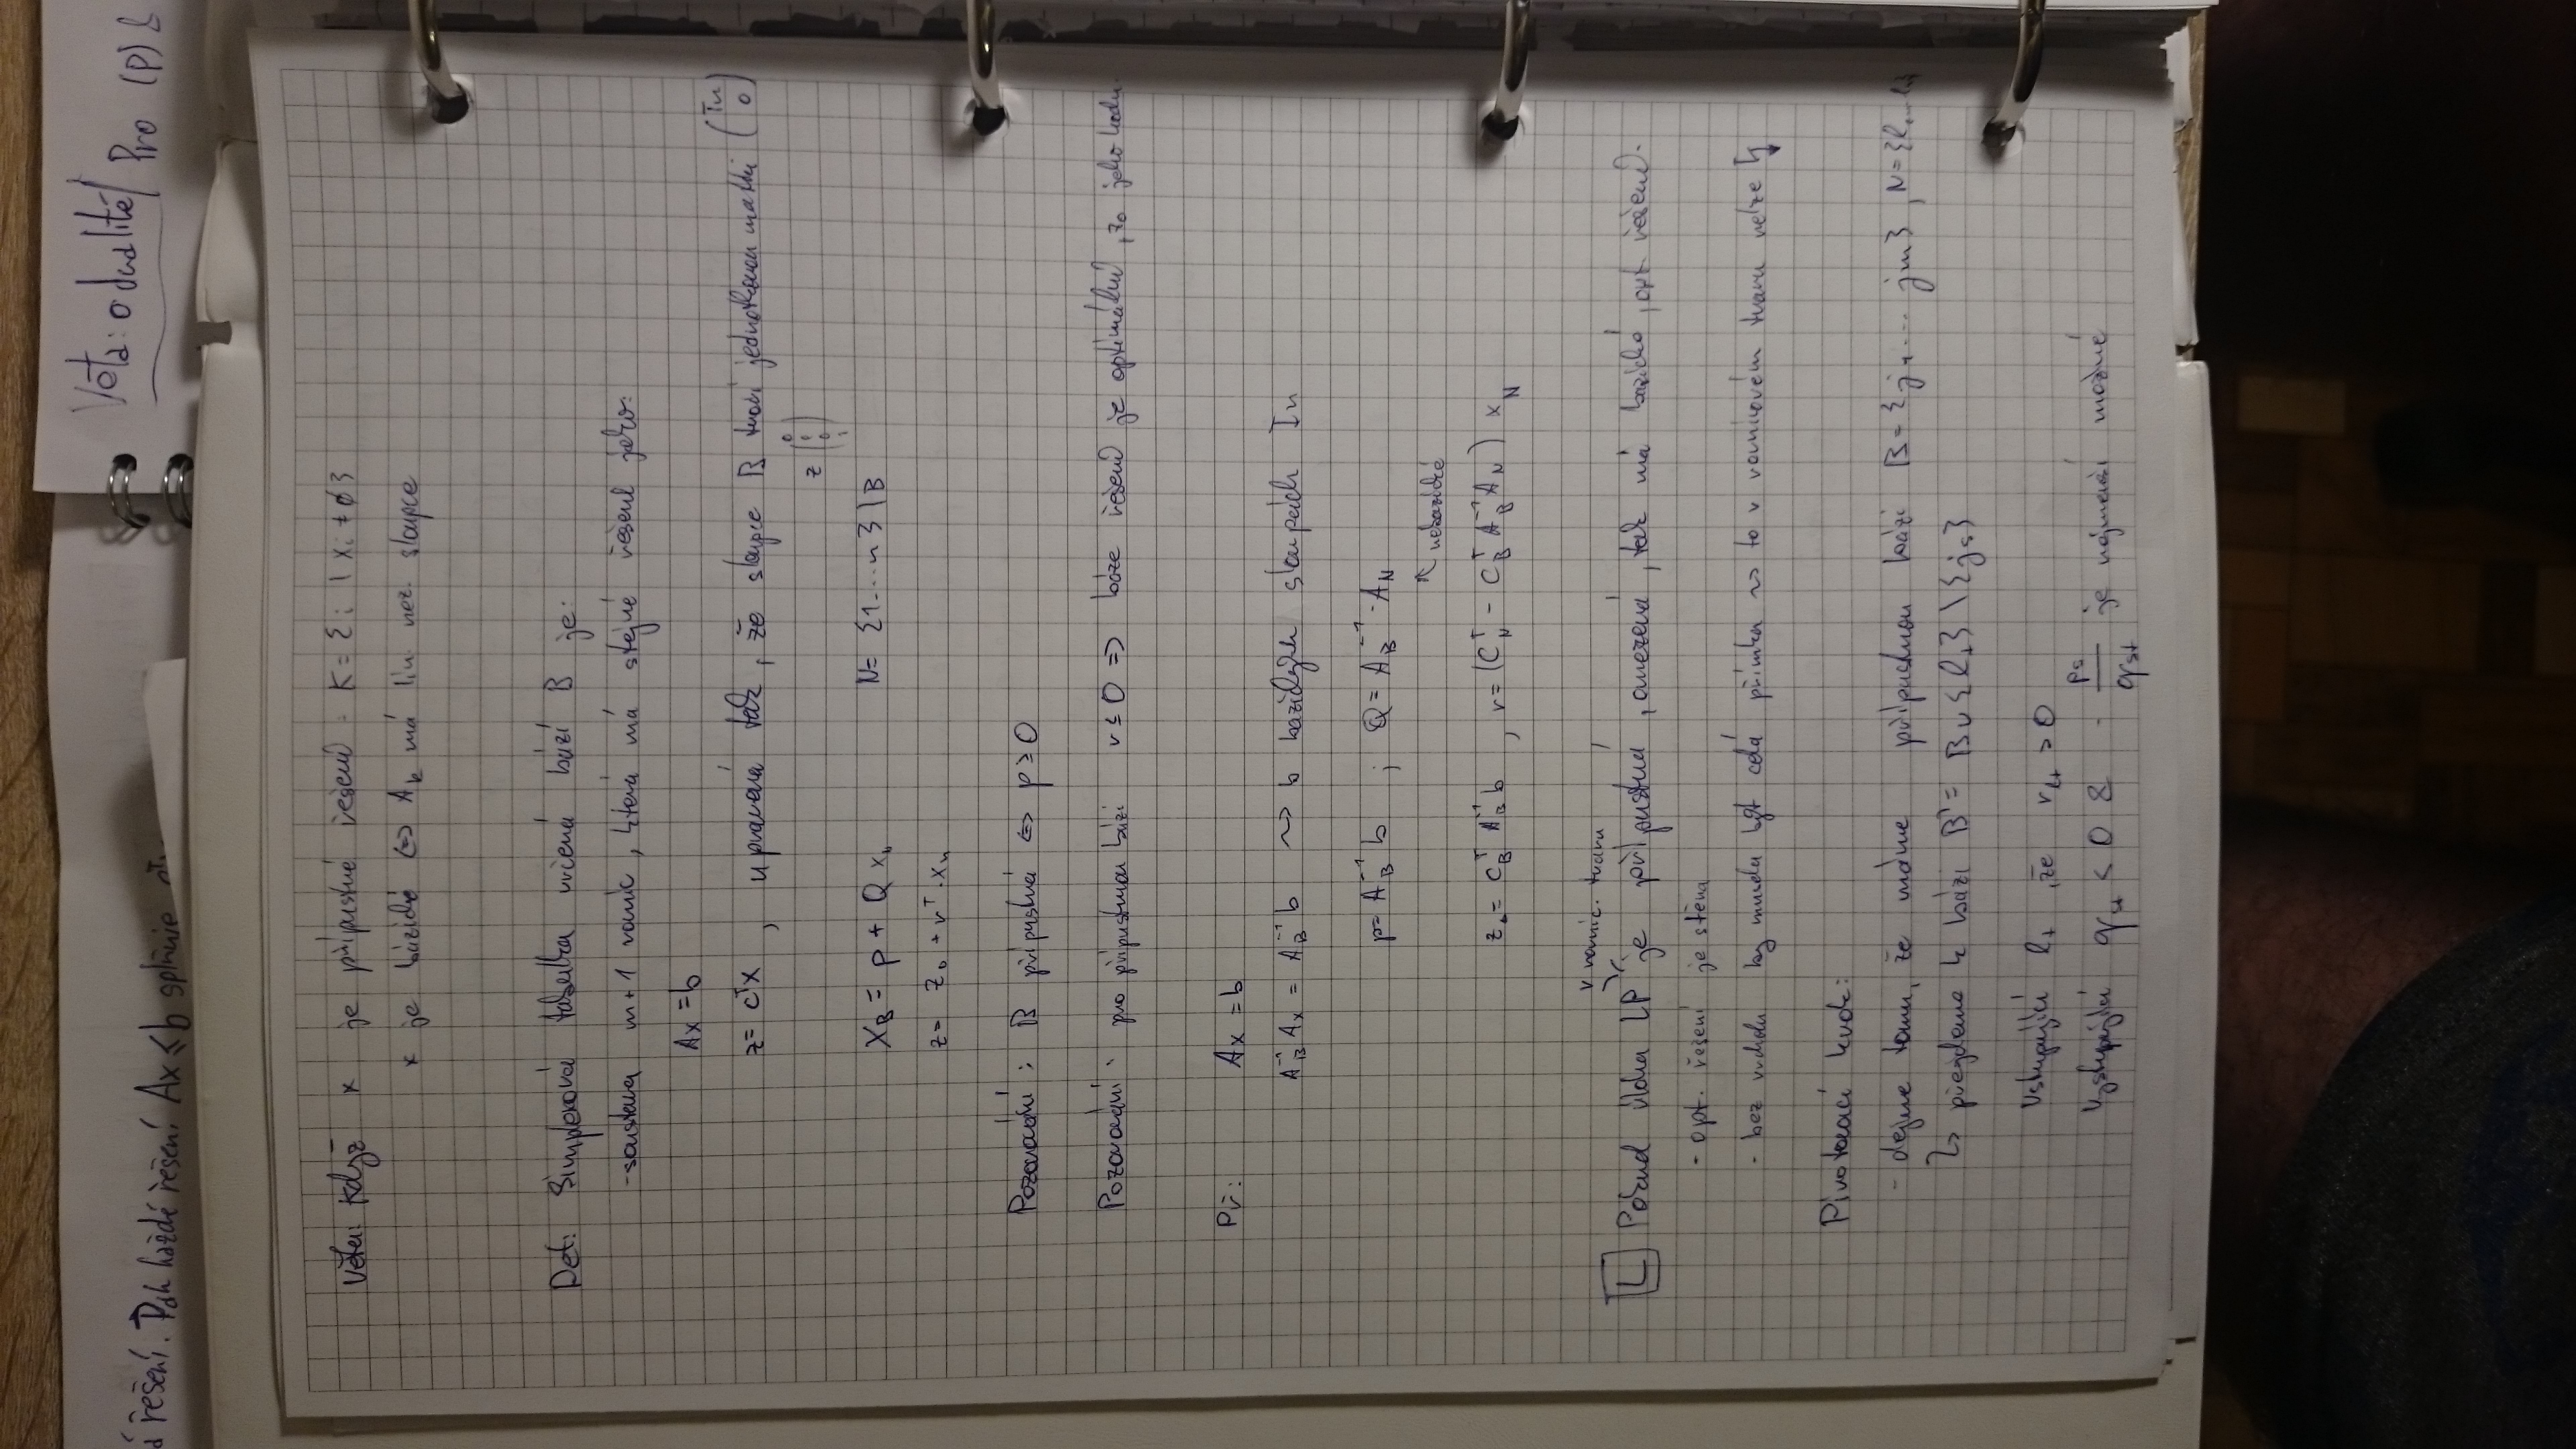 Věta: o dualitě / Pro (P) &
řešení. Pak každé řešení Ax ≤ b splňuje
Věta: Když x je přípustné řešení. K = {i | xi ≠ 0}
x je bázické ⇔ Ak má lin. nez. sloupce
Def: Simplexová tabulka určená bází B je:
- soustava m+1 rovnic, která má stejné řešení jako:
Ax = b
z = cᵀx , upravená tak, že sloupce B tvoří jednotkovou matici (In 0)
z (0 0 0 1)
XB = P + Q xn N = {1...n}\B
z = z0 + rᵀ.xn
Pozorování: B přípustná ⇔ p ≥ 0
Pozorování: pro přípustnou bázi r ≤ 0 => báze řešení je optimální, z0 jeho hodn.
Př: Ax = b
A_B⁻¹Ax = A_B⁻¹b ~> b bazických sloupcích In
p = A_B⁻¹ b ; Q = A_B⁻¹ . A_N
↖ nebazické
z0 = c_Bᵀ A_B⁻¹ b , r = (C_Nᵀ - C_Bᵀ A_B⁻¹ A_N) x_N
v rovnic. tvaru
L Pokud úloha LP je přípustná, omezená, tak má bazické, opt. řešení.
- opt. řešení je stěna
- bez vrcholu by musela být celá přímka ~> to v rovnicovém tvaru nelze ↯
Pivotovací krok:
- dejme tomu, že máme přípustnou bázi B = {j1.... jm}, N = {l1...
↳ přejdeme k bázi B' = B ∪ {lt} \ {js}
Vstupující lt , že rt > 0
Vystupující qst < 0 & - ps/qst je nejmenší možné